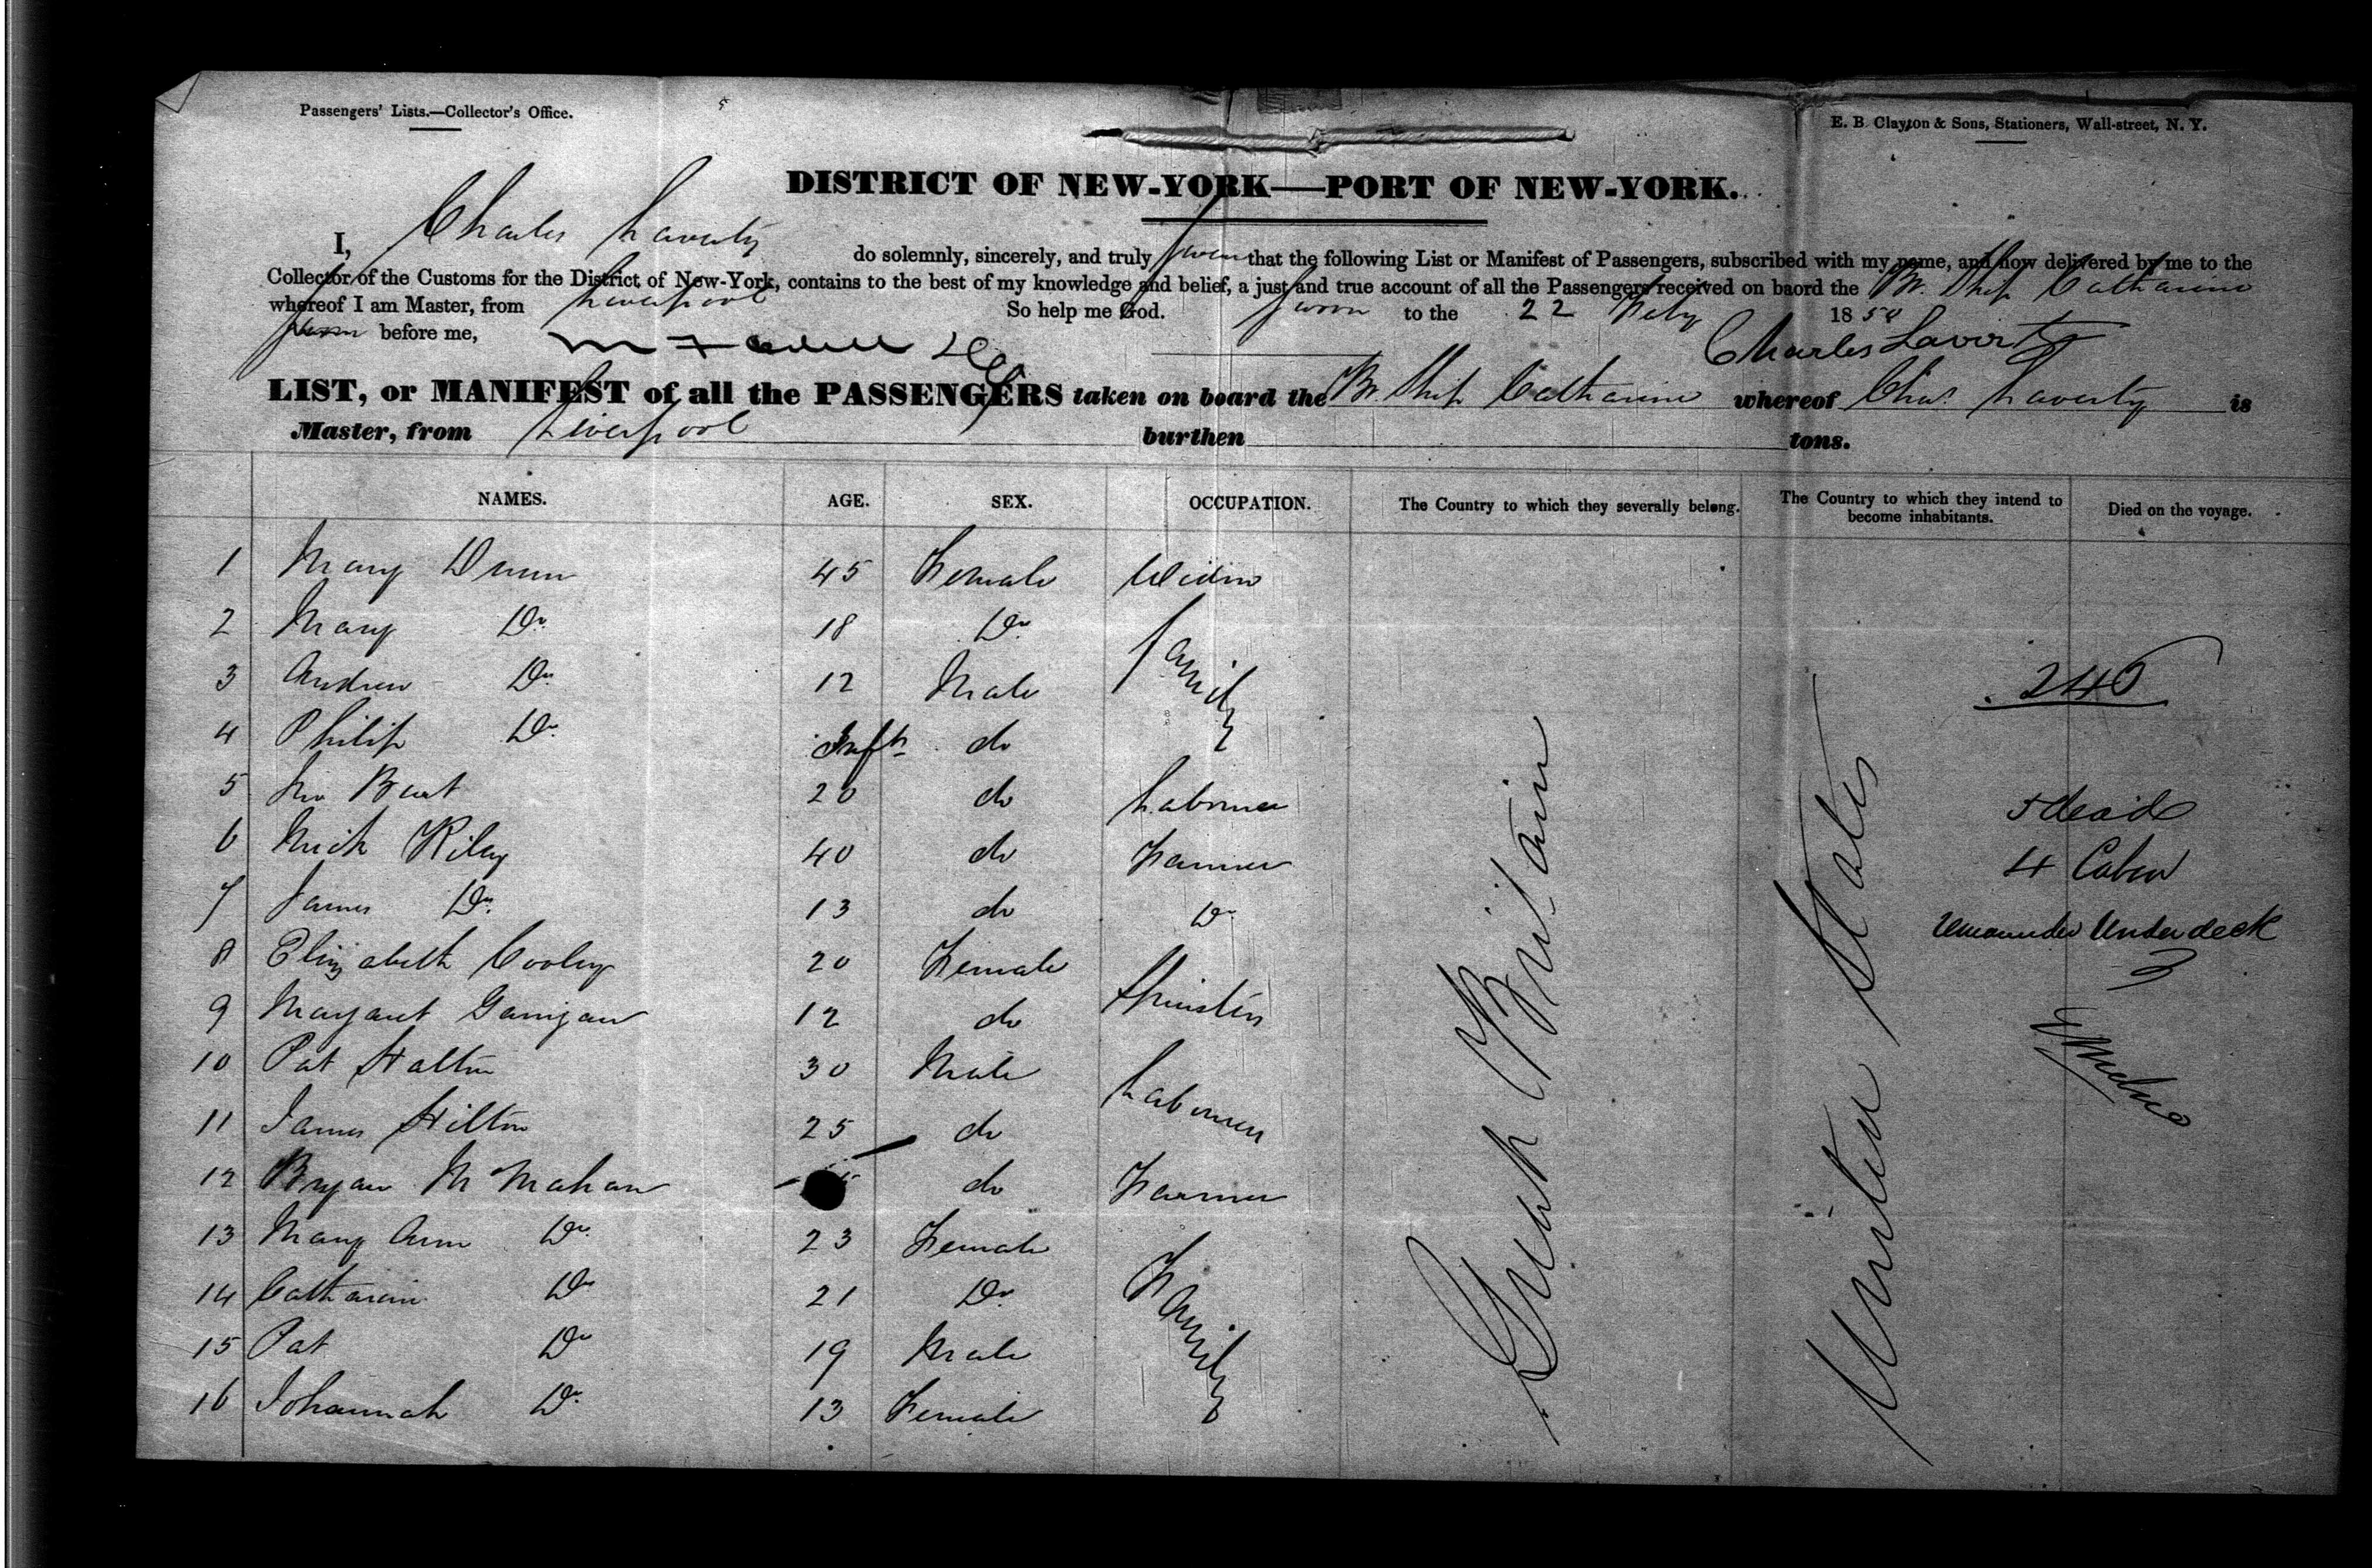 Passengers' Lists.—Collector's Office.
E. B. Clayton & Sons, Stationers, Wall-street, N. Y.
DISTRICT OF NEW-YORK—PORT OF NEW-YORK.
I, Charles Laverty do solemnly, sincerely, and truly swear that the following List or Manifest of Passengers, subscribed with my name, and now delivered by me to the
Collector of the Customs for the District of New-York, contains to the best of my knowledge and belief, a just and true account of all the Passengers received on baord the Br. Ship Catharine
whereof I am Master, from Liverpool So help me God. Sworn to the 22 Feby 1850
Sworn before me, Charles Laverty
LIST, or MANIFEST of all the PASSENGERS taken on board the Br. Ship Catharine whereof Chas. Laverty is
Master, from Liverpool burthen tons.
NAMES. AGE. SEX. OCCUPATION. The Country to which they severally belong. The Country to which they intend to become inhabitants. Died on the voyage.
1 Mary Dunn 45 Female Widow
2 Mary Do. 18 Do.
3 Andrew Do. 12 Male Family
4 Philip Do. Inft. do
5 Jno 20 do Labourer
6 Mich Riley 40 do Farmer
7 James Do. 13 do Do.
8 Elizabeth Cooley 20 Female
9 Margaret Garrigan 12 do Spinsters
10 Pat Halton 30 Male
11 James Hilton 25 do Labourers
12 Bryan McMahan do Farmer
13 Mary Ann Do. 23 Female
14 Catharine Do 21 Do.
15 Pat Do 19 Male Family
16 Johannah Do. 13 Female
Great Britain
United States
240
5 dead
4 Cabin
remainder Under deck